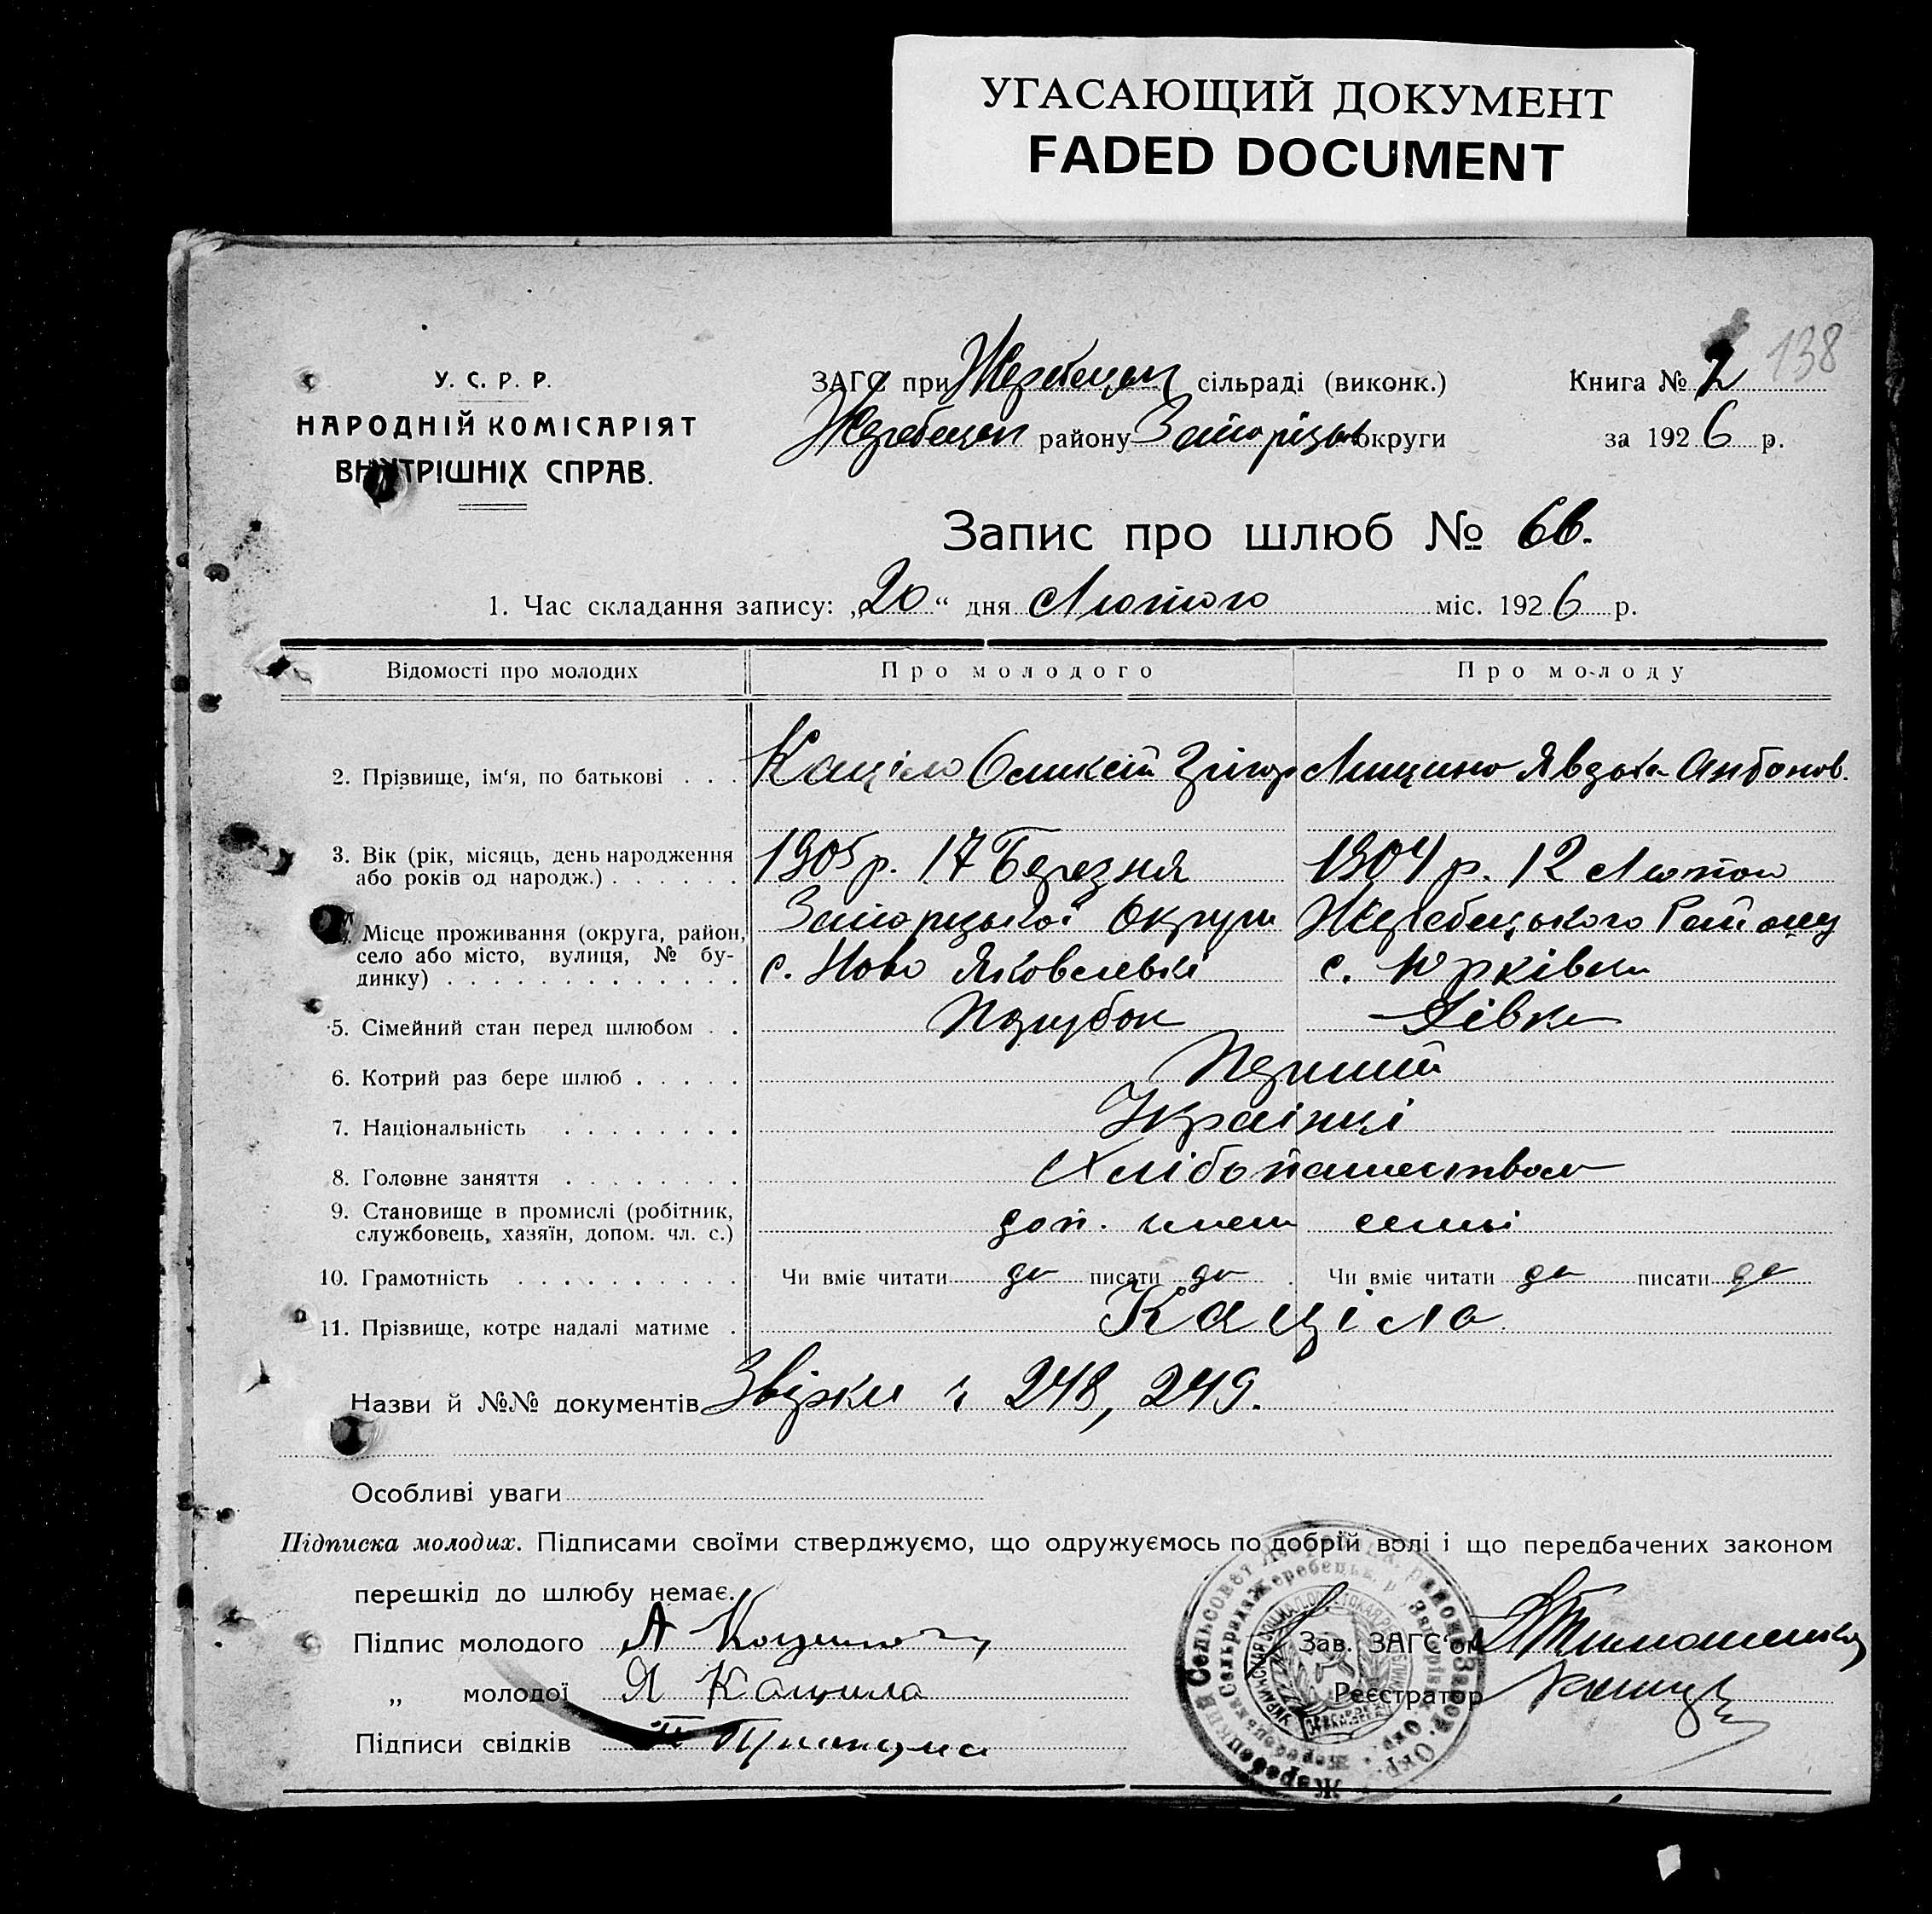 УГАСАЮЩИЙ ДОКУМЕНТ
FADED DOCUMENT
138
У. С. Р. Р.
НАРОДНІЙ КОМІСАРІЯТ
ВНУТРІШНІХ СПРАВ.
ЗАГС при Жеребецьк сільраді (виконк.)
Жеребецьк району Запорізьк округи
Книга № 2
за 1926 р.
Запис про шлюб № 66.
1. Час складання запису: „20“ дня Лютого міс. 1926 р.
Відомості про молодих Про молодого Про молоду
2. Прізвище, ім'я, по батькові . . . Каціло Оликсій Грігор Лицино Явдоха Антонов.
3. Вік (рік, місяць, день народження
або років од народж.) . . . . . . 1905 р. 17 Березня 1904 р. 12 Лютого
4. Місце проживання (округа, район, Запорізької Округи Жеребецького Району
село або місто, вулиця, № бу-
динку) . . . . . . . . . . . . . с. Ново Яковлевкі с. Юрківки
5. Сімейний стан перед шлюбом . . Парубок Дівка
6. Котрий раз бере шлюб . . . . . Перший
7. Національність . . . . . . . . Українці
8. Головне заняття . . . . . . . . Хлібопашеством
9. Становище в промислі (робітник,
службовець, хазяїн, допом. чл. с.) доп. член семьі
10. Грамотність . . . . . . . . . . Чи вміє читати да писати да . Чи вміє читати да писати да
11. Прізвище, котре надалі матиме . Каціла
Назви й №№ документів Звізки 248, 249.
Особливі уваги
Підписка молодих. Підписами своїми стверджуємо, що одружуємось по добрій волі і що передбачених законом
перешкід до шлюбу немає.
Підпис молодого А
„ молодої Я Кацила
Підписи свідків
Зав. ЗАГС'ом Тимошенко
Реєстратор